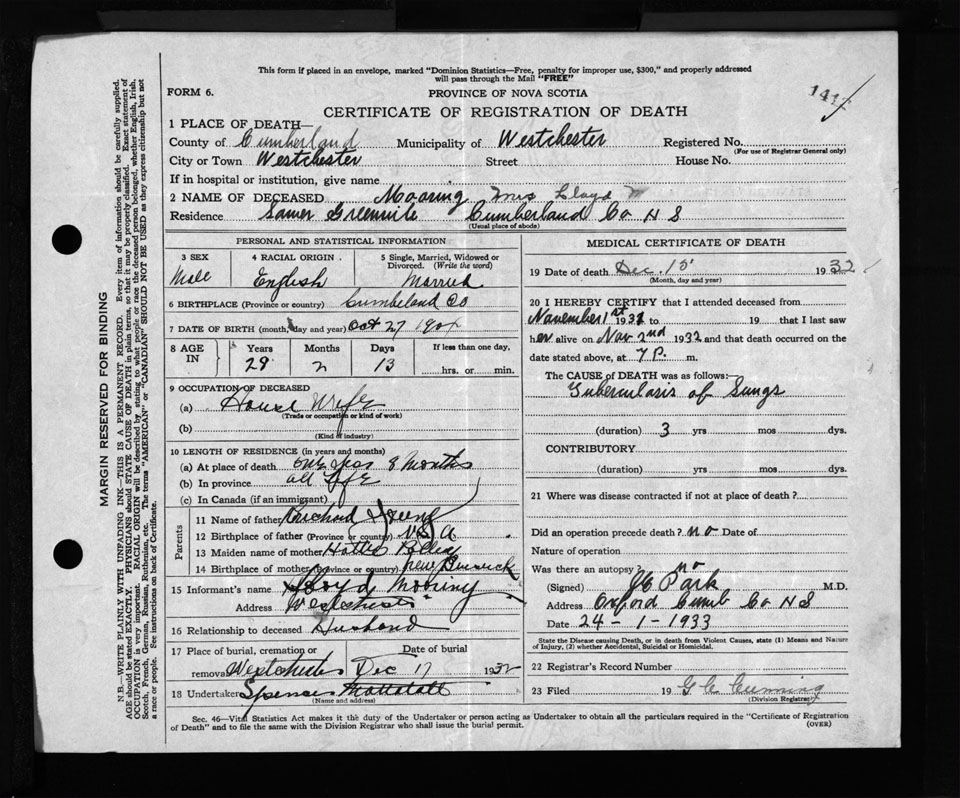 This form if placed in an envelope, marked "Dominion Statistics—Free, penalty for improper use, $300," and properly addressed
will pass through the Mail "FREE"
FORM 6.
PROVINCE OF NOVA SCOTIA
CERTIFICATE OF REGISTRATION OF DEATH
1 PLACE OF DEATH—
County of Cumberland Municipality of Westchester Registered No.
(For use of Registrar General only)
City or Town Westchester Street House No.
If in hospital or institution, give name
2 NAME OF DECEASED Mooring Mrs
Residence Cumberland Co N S
(Usual place of abode)
PERSONAL AND STATISTICAL INFORMATION
3 SEX
Male
4 RACIAL ORIGIN
English
5 Single, Married, Widowed or Divorced. (Write the word)
Married
6 BIRTHPLACE (Province or country) Cumbeland Co
7 DATE OF BIRTH (month, day and year) Oct 27
8 AGE IN Years Months Days If less than one day,
28 2 13 hrs. or min.
9 OCCUPATION OF DECEASED
(a) House Wife
(Trade or occupation or kind of work)
(b)
(Kind of industry)
10 LENGTH OF RESIDENCE (in years and months)
(a) At place of death 8 Months
(b) In province all Life
(c) In Canada (if an immigrant)
Parents
11 Name of father
12 Birthplace of father (Province or country)
13 Maiden name of mother
14 Birthplace of mother (Province or country)
15 Informant's name Mooring
Address
16 Relationship to deceased Husband
17 Place of burial, cremation or removal Date of burial
Dec 17 1932
18 Undertaker Spencer
(Name and address)
MEDICAL CERTIFICATE OF DEATH
19 Date of death Dec. 15 1932
(Month, day and year)
20 I HEREBY CERTIFY that I attended deceased from
November 1st to 19 that I last saw
her alive on Nov 2nd 1932 and that death occurred on the
date stated above, at 7 P. m.
The CAUSE of DEATH was as follows:
Tuberculosis of Lungs
(duration) 3 yrs mos dys.
CONTRIBUTORY
(duration) yrs mos dys.
21 Where was disease contracted if not at place of death?
Did an operation precede death? no Date of
Nature of operation
Was there an autopsy? no
(Signed) Park M.D.
Address Oxford Cumb Co N S
Date 24-1-1933
State the Disease causing Death, or in death from Violent Causes, state (1) Means and Nature of Injury, (2) whether Accidental, Suicidal or Homicidal.
22 Registrar's Record Number
23 Filed 19
(Division Registrar)
Sec. 46—Vital Statistics Act makes it the duty of the Undertaker or person acting as Undertaker to obtain all the particulars required in the "Certificate of Registration
of Death" and to file the same with the Division Registrar who shall issue the burial permit.
(OVER)
MARGIN RESERVED FOR BINDING
N.B.—WRITE PLAINLY WITH UNFADING INK—THIS IS A PERMANENT RECORD. Every item of information should be carefully supplied.
AGE should be stated EXACTLY. PHYSICIANS should STATE CAUSE OF DEATH in plain terms, so that it may be properly classified. Exact statement of
OCCUPATION is very important. RACIAL ORIGIN will be described by stating to what people or race the deceased person belonged, whether English, Irish,
Scotch, French, German, Russian, Ruthenian, etc. The terms "AMERICAN" or "CANADIAN" SHOULD NOT BE USED as they express citizenship but not
a race or people. See instructions on back of Certificate.